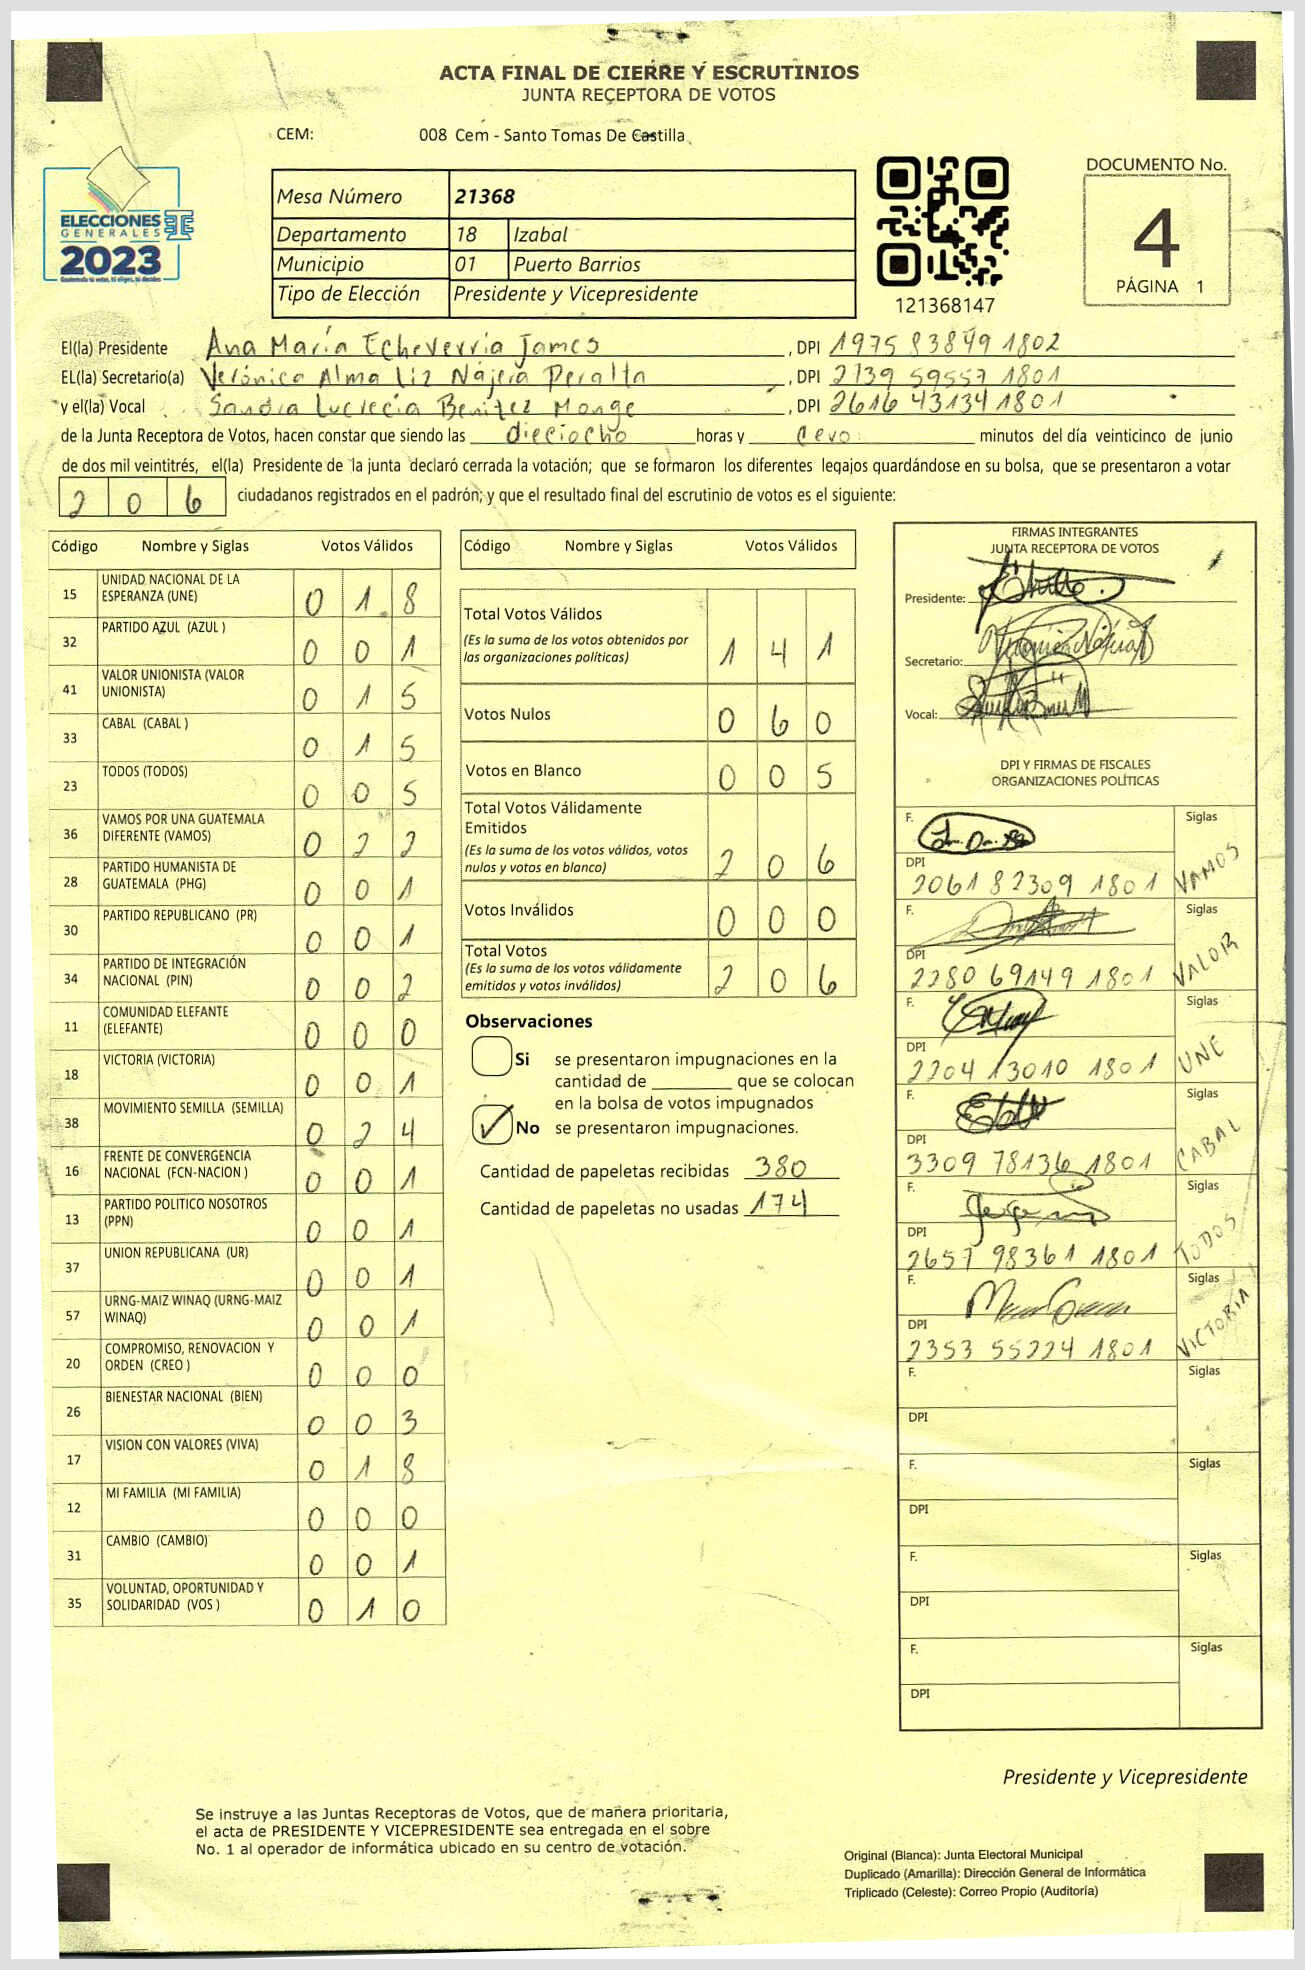 ACTA FINAL DE CIERRE Y ESCRUTINIOS
JUNTA RECEPTORA DE VOTOS
CEM: 008 Cem - Santo Tomas De Castilla
ELECCIONES
GENERALES
2023
Mesa Número 21368
Departamento 18 Izabal
Municipio 01 Puerto Barrios
Tipo de Elección Presidente y Vicepresidente
121368147
DOCUMENTO No.
4
PÁGINA 1
El(la) Presidente Ana María Echeverria James, DPI 1975 83849 1802
EL(la) Secretario(a) Verónica Alma Liz Nájera Peralta, DPI 2139 59557 1801
y el(la) Vocal Sandra Lucrecia Benitez Monge, DPI 2616 43134 1801
de la Junta Receptora de Votos, hacen constar que siendo las dieciocho horas y cero minutos del día veinticinco de junio
de dos mil veintitrés, el(la) Presidente de la junta declaró cerrada la votación; que se formaron los diferentes legajos guardándose en su bolsa, que se presentaron a votar
206 ciudadanos registrados en el padrón; y que el resultado final del escrutinio de votos es el siguiente:
Código Nombre y Siglas Votos Válidos
15 UNIDAD NACIONAL DE LA ESPERANZA (UNE) 0 1 8
32 PARTIDO AZUL (AZUL ) 0 0 1
41 VALOR UNIONISTA (VALOR UNIONISTA) 0 1 5
33 CABAL (CABAL ) 0 1 5
23 TODOS (TODOS) 0 0 5
36 VAMOS POR UNA GUATEMALA DIFERENTE (VAMOS) 0 2 2
28 PARTIDO HUMANISTA DE GUATEMALA (PHG) 0 0 1
30 PARTIDO REPUBLICANO (PR) 0 0 1
34 PARTIDO DE INTEGRACIÓN NACIONAL (PIN) 0 0 2
11 COMUNIDAD ELEFANTE (ELEFANTE) 0 0 0
18 VICTORIA (VICTORIA) 0 0 1
38 MOVIMIENTO SEMILLA (SEMILLA) 0 2 4
16 FRENTE DE CONVERGENCIA NACIONAL (FCN-NACION ) 0 0 1
13 PARTIDO POLITICO NOSOTROS (PPN) 0 0 1
37 UNION REPUBLICANA (UR) 0 0 1
57 URNG-MAIZ WINAQ (URNG-MAIZ WINAQ) 0 0 1
20 COMPROMISO, RENOVACION Y ORDEN (CREO ) 0 0 0
26 BIENESTAR NACIONAL (BIEN) 0 0 3
17 VISION CON VALORES (VIVA) 0 1 8
12 MI FAMILIA (MI FAMILIA) 0 0 0
31 CAMBIO (CAMBIO) 0 0 1
35 VOLUNTAD, OPORTUNIDAD Y SOLIDARIDAD (VOS ) 0 1 0
Código Nombre y Siglas Votos Válidos
Total Votos Válidos
(Es la suma de los votos obtenidos por
las organizaciones políticas) 1 4 1
Votos Nulos 0 6 0
Votos en Blanco 0 0 5
Total Votos Válidamente
Emitidos
(Es la suma de los votos válidos, votos
nulos y votos en blanco) 2 0 6
Votos Inválidos 0 0 0
Total Votos
(Es la suma de los votos válidamente
emitidos y votos inválidos) 2 0 6
Observaciones
Si se presentaron impugnaciones en la
cantidad de ________ que se colocan
en la bolsa de votos impugnados
No se presentaron impugnaciones.
Cantidad de papeletas recibidas 380
Cantidad de papeletas no usadas 174
FIRMAS INTEGRANTES
JUNTA RECEPTORA DE VOTOS
Presidente:
Secretario:
Vocal:
DPI Y FIRMAS DE FISCALES
ORGANIZACIONES POLÍTICAS
F. Siglas
DPI 2061 82309 1801 VAMOS
F. Siglas
DPI 2280 69149 1801 VALOR
F. Siglas
DPI 2204 13010 1801 UNE
F. Siglas
DPI 3309 78136 1801 CABAL
F. Siglas
DPI 2657 98361 1801 TODOS
F. Siglas
DPI 2353 55224 1801 VICTORIA
F. Siglas
DPI
F. Siglas
DPI
F. Siglas
DPI
F. Siglas
DPI
Presidente y Vicepresidente
Se instruye a las Juntas Receptoras de Votos, que de mañera prioritaria,
el acta de PRESIDENTE Y VICEPRESIDENTE sea entregada en el sobre
No. 1 al operador de informática ubicado en su centro de votación.
Original (Blanca): Junta Electoral Municipal
Duplicado (Amarilla): Dirección General de Informática
Triplicado (Celeste): Correo Propio (Auditoría)